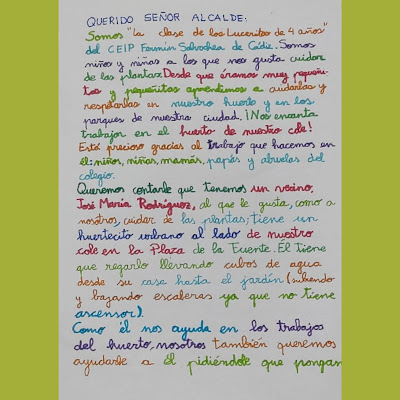 QUERIDO SEÑOR ALCALDE:
Somos "la clase de los Luceritos de 4 años"
del CEIP Fermín Salvochea de Cádiz. Somos
niños y niñas a los que nos gusta cuidar
de las plantas. Desde que éramos muy pequeñi-
tos y pequeñitas aprendimos a cuidarlas y
respetarlas en nuestro huerto y en los
parques de nuestra ciudad. ¡Nos encanta
trabajar en el huerto de nuestro cole!
Está precioso gracias al trabajo que hacemos en
él: niños, niñas, mamás, papás y abuelas del
colegio.
Queremos contarle que tenemos un vecino,
José María Rodríguez, al que le gusta, como a
nosotros, cuidar de las plantas; tiene un
huertecito urbano al lado de nuestro
cole en la Plaza de la Fuente. Él tiene
que regarlo llevando cubos de agua
desde su casa hasta el jardín (subiendo
y bajando escaleras ya que no tiene
ascensor).
Como él nos ayuda en los trabajos
del huerto, nosotros también queremos
ayudarle a él pidiéndole que pongan